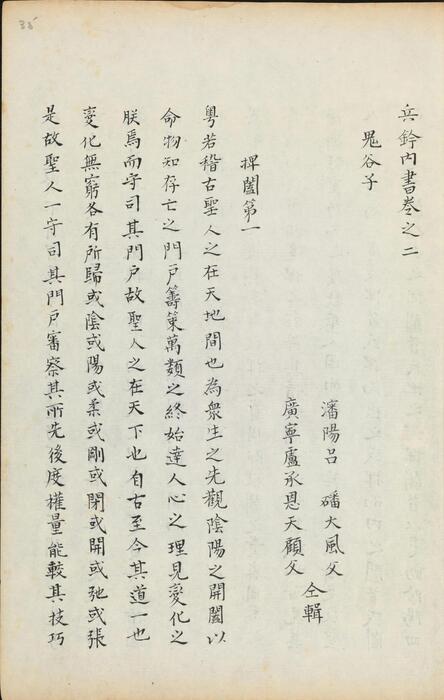 兵鈐內書卷之二
鬼谷子
瀋陽呂磻大風父
廣寧盧承恩天顧父
仝輯
捭闔第一
粵若稽古聖人之在天地間也為衆生之先觀陰陽之開闔以
命物知存亡之門戶籌策萬類之終始達人心之理見變化之
朕焉而守司其門戶故聖人之在天下也自古至今其道一也
變化無窮各有所歸或陰或陽或柔或剛或閉或開或弛或張
是故聖人一守司其門戶審察其所先後度權量能較其技巧
35